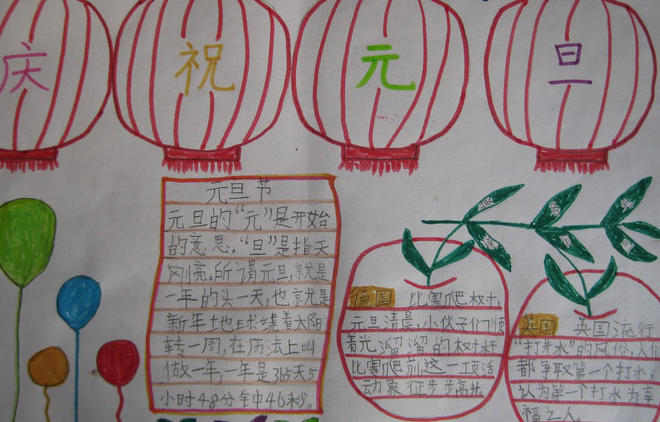 庆祝元旦
元旦节
元旦的“元”是开始
的意思，“旦”是指天
刚亮。所谓元旦，就是
一年的头一天，也就是
新年地球绕着太阳
转一周，在历法上叫
做一年，一年是365天5
小时48分钟46秒。
德国 比赛爬树
元旦清晨，小伙子们顺
着光溜溜的树杆
比赛爬前这一项活
动象征步步高升
英国 英国流行
“打井水”的风俗，人们
都争取第一个打水，
认为第一个打水为幸
福之人。